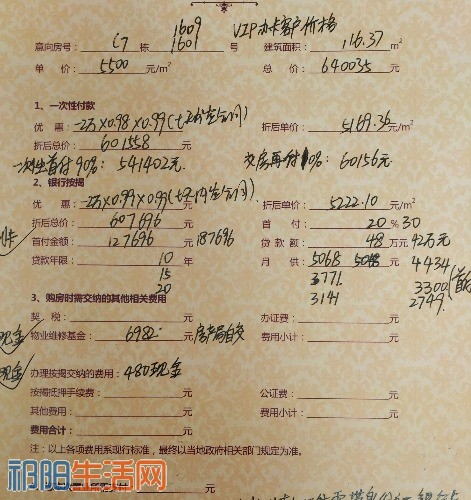 1609 VIP办卡客户价格
意向房号： i7 栋 1601 号 建筑面积： 116.37 m²
单 价： 5500 元/m² 总 价： 640035 元
1、一次性付款
优 惠： -2万×0.98×0.99 折后单价： 5169.36 元/m²
折后总价： 601558 元
一次性首付90%：541402元 交房再付10%：60156元
2、银行按揭
优 惠： -2万×0.99×0.99 折后单价： 5222.10 元/m²
折后总价： 607696 元 首 付： 20 % 30
首付金额： 127696 元 187696 贷 款 额： 48 万元 42万元
贷款年限： 10 年 月 供： 5068 5048 元 4434
15 3771 3300
20 3141 2749
3、购房时需交纳的其他相关费用
契 税： 元 办证费： 元
现金 物业维修基金： 6982 元 房产局自交 费用小计： 元
现金 办理按揭交纳的费用：480现金
按揭抵押手续费： 元 公证费： 元
其他费用： 元 费用小计： 元
费用合计： 元
注：以上各项费用系现行标准，最终以当地政府相关部门规定为准。
祁阳生活网